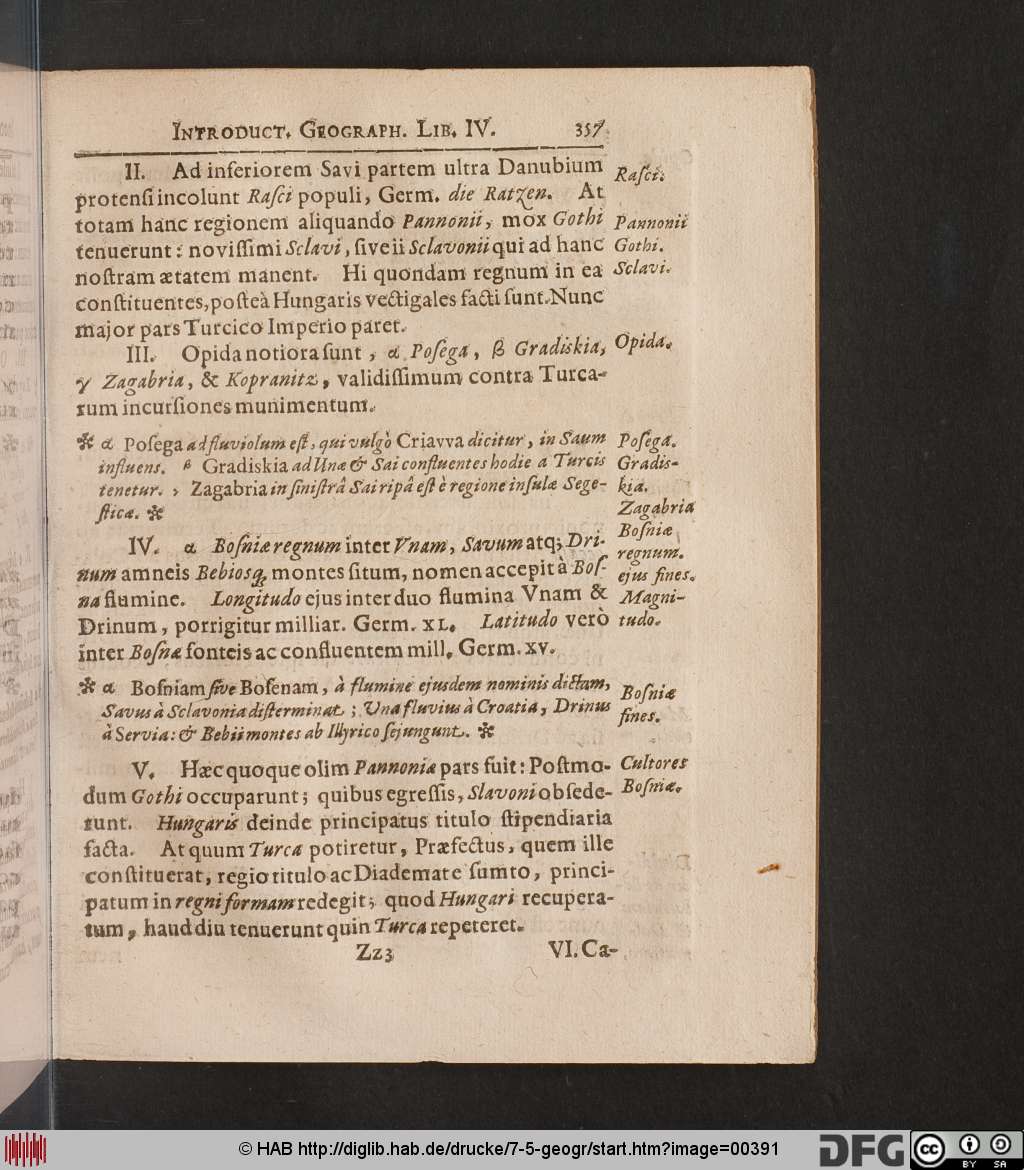 INTRODUCT. GEOGRAPH. LIB. IV. 357
II. Ad inferiorem Savi partem ultra Danubium
protensi incolunt Rasci populi, Germ. die Ratzen. At
totam hanc regionem aliquando Pannonii, mox Gothi
tenuerunt: novissimi Sclavi, sive ii Sclavonii qui ad hanc
nostram ætatem manent. Hi quondam regnum in ea
constituentes, posteà Hungaris vectigales facti sunt. Nunc
major pars Turcico Imperio paret.
III. Opida notiora sunt, α Posega, β Gradiskia,
γ Zagabria, & Kopranitz, validissimum contra Turca-
rum incursiones munimentum.
✻ α Posega ad fluviolum est, qui vulgò Criavva dicitur, in Saum
influens. β Gradiskia ad Unæ & Sai confluentes hodie a Turcis
tenetur. γ Zagabria in sinistrâ Sai ripâ est è regione insulæ Sege-
sticæ. ✻
IV. α Bosniæ regnum inter Vnam, Savum atq; Dri-
num amneis Bebiosq; montes situm, nomen accepit à Bos-
na flumine. Longitudo ejus inter duo flumina Vnam &
Drinum, porrigitur milliar. Germ. XL. Latitudo verò
inter Bosnæ fonteis ac confluentem mill. Germ. XV.
✻ α Bosniam sive Bosenam, à flumine ejusdem nominis dictam,
Savus à Sclavonia disterminat; Una fluvius à Croatia, Drinus
à Servia: & Bebii montes ab Illyrico sejungunt. ✻
V. Hæc quoque olim Pannoniæ pars fuit: Postmo-
dum Gothi occuparunt; quibus egressis, Slavoni obsede-
runt. Hungaris deinde principatus titulo stipendiaria
facta. At quum Turca potiretur, Præfectus, quem ille
constituerat, regio titulo ac Diademate sumto, princi-
patum in regni formam redegit; quod Hungari recupera-
tum, haud diu tenuerunt quin Turca repeteret.
Zz3 VI. Ca-
Rasci.
Pannonii
Gothi.
Sclavi.
Opida.
Posega.
Gradis-
kia.
Zagabria
Bosniæ
regnum.
ejus fines.
Magni-
tudo.
Bosniæ
fines.
Cultores
Bosniæ.
© HAB http://diglib.hab.de/drucke/7-5-geogr/start.htm?image=00391
DFG
cc
BY SA